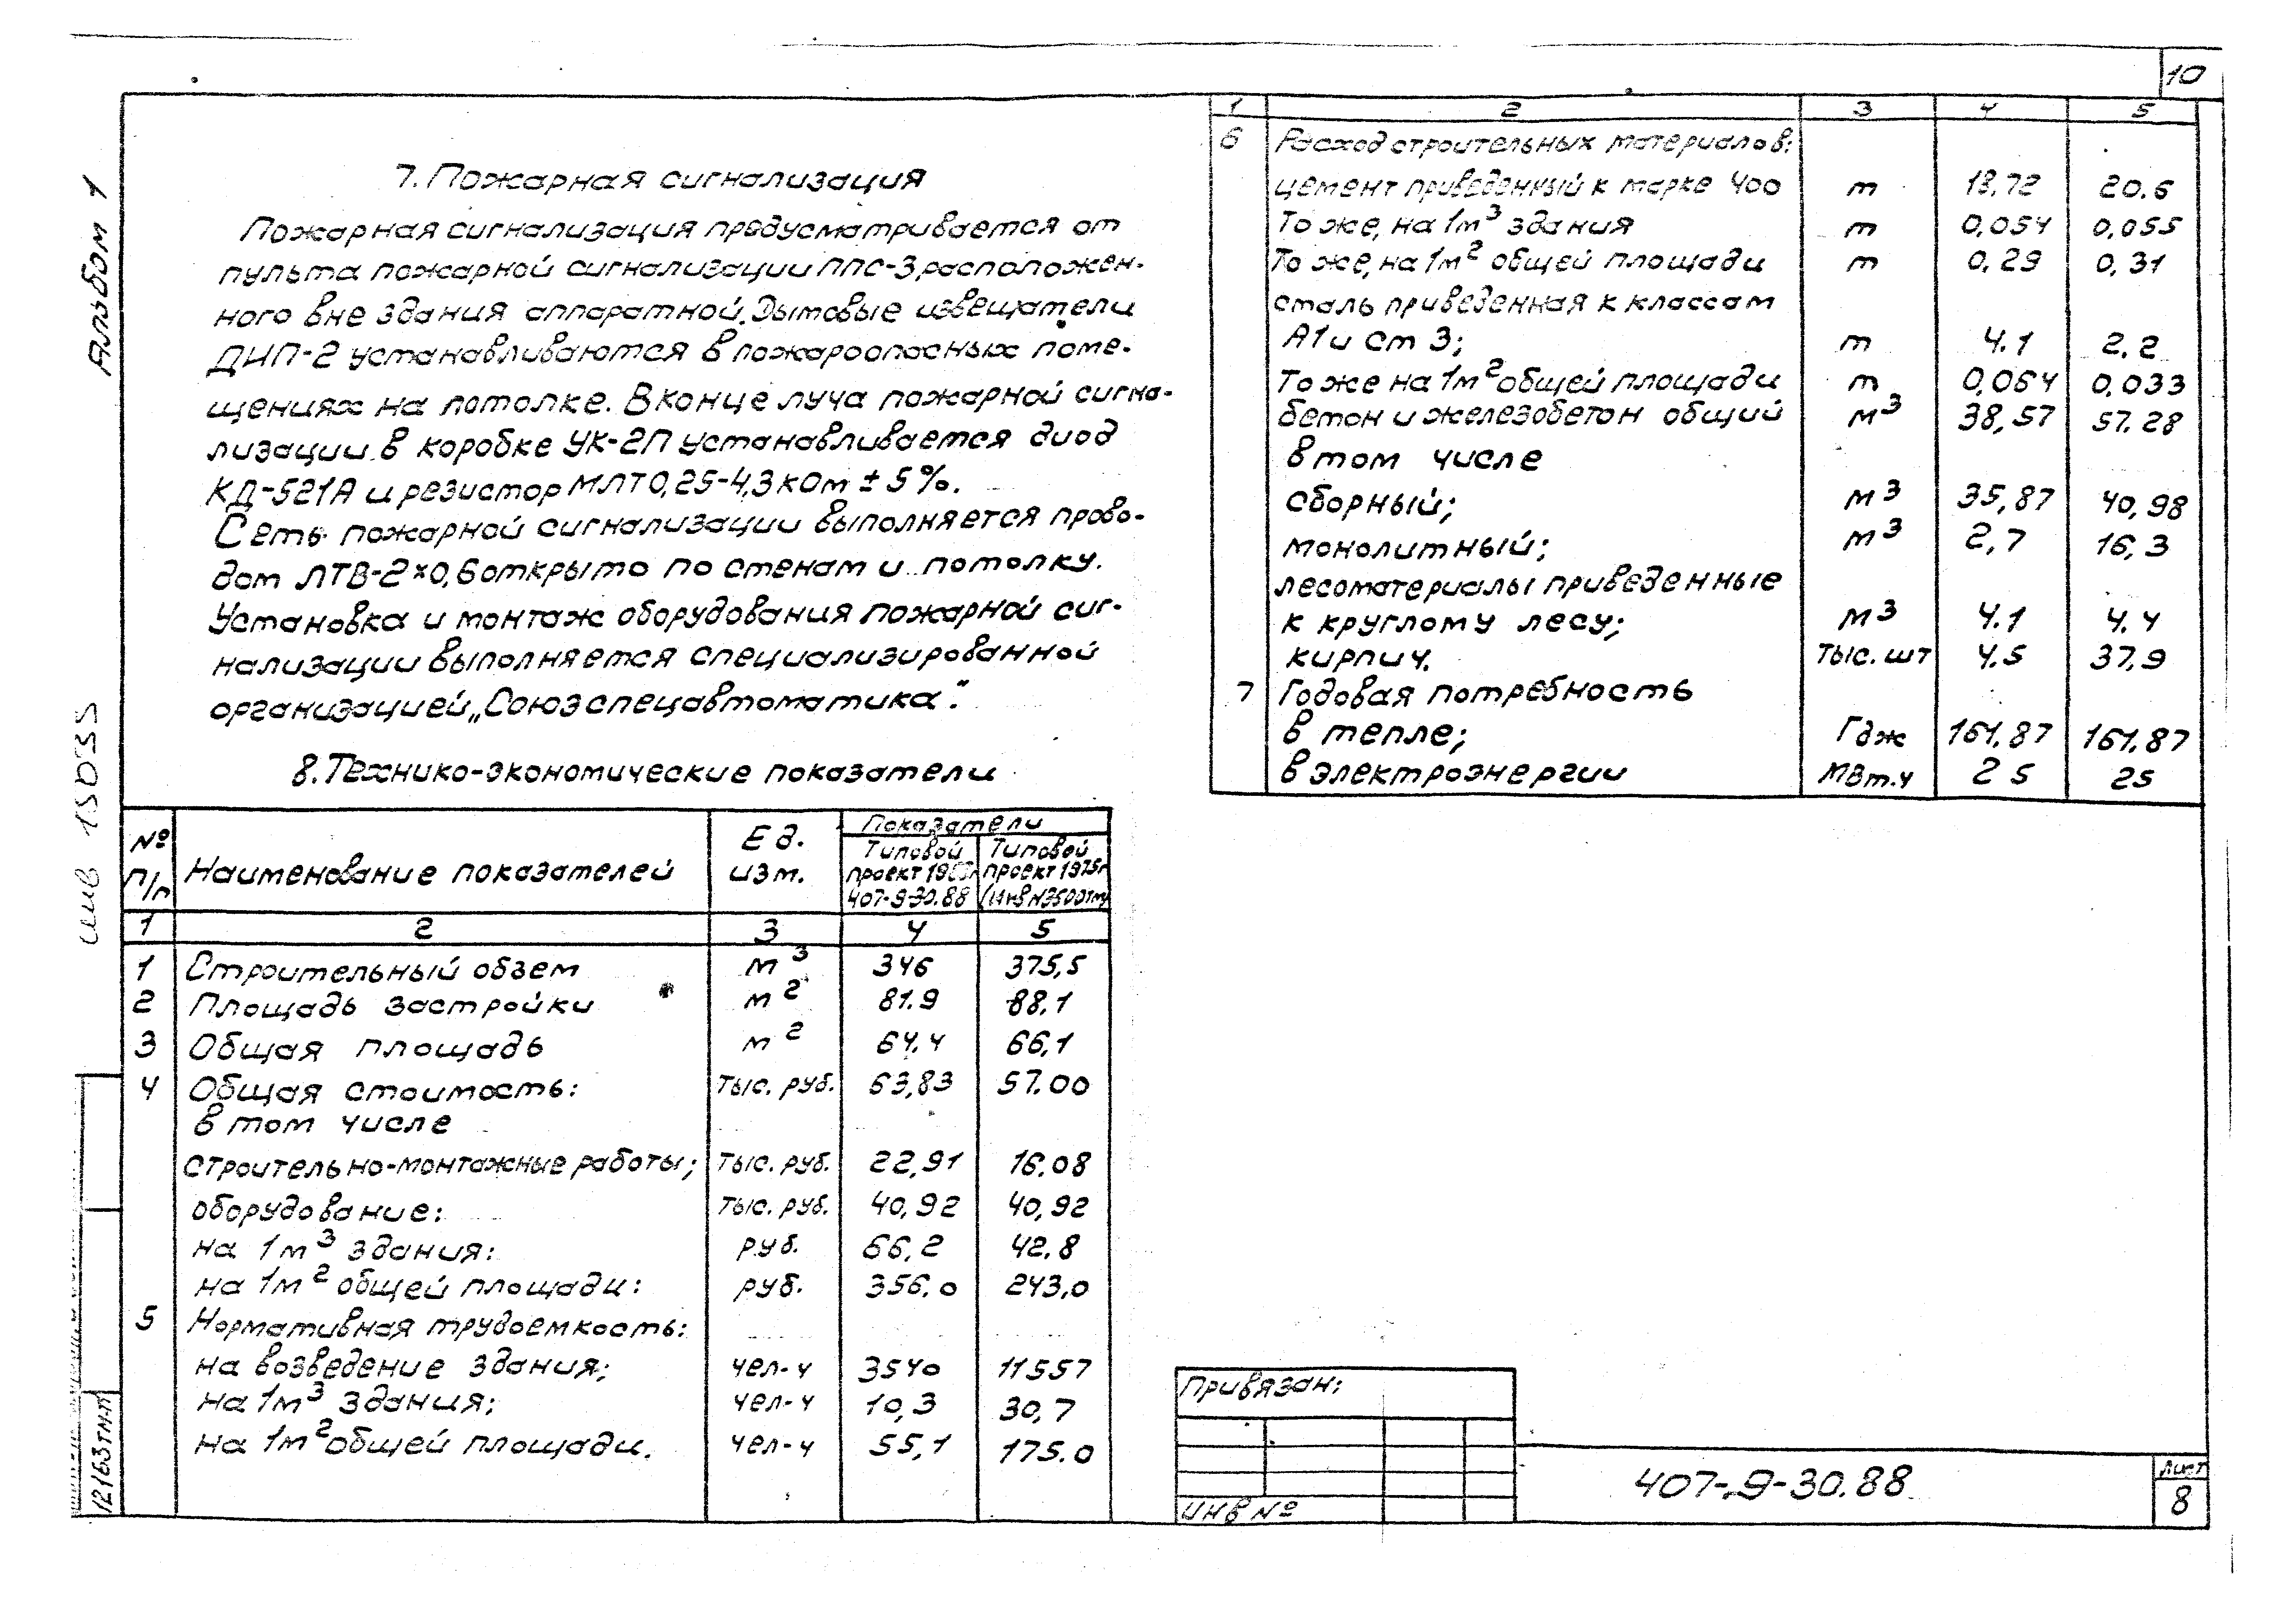 10
Альбом 1
7. Пожарная сигнализация
Пожарная сигнализация предусматривается от
пульта пожарной сигнализации ППС-3, расположен-
ного вне здания аппаратной. Дымовые извещатели
ДИП-2 устанавливаются в пожароопасных поме-
щениях на потолке. В конце луча пожарной сигна-
лизации в коробке УК-2П устанавливается диод
КД-521А и резистор МЛТ 0,25-4,3 кОм ± 5%.
Сеть пожарной сигнализации выполняется прово-
дом ЛТВ-2×0,6 открыто по стенам и потолку.
Установка и монтаж оборудования пожарной сиг-
нализации выполняется специализированной
организацией „Союзспецавтоматика".
8. Технико-экономические показатели
№ п/п Наименование показателей Ед. изм. Показатели
Типовой проект 407-9-30.88 Типовой проект 1975г
1 2 3 4 5
1 Строительный обзем м3 346 375,5
2 Площадь застройки м2 81.9 88,1
3 Общая площадь м2 64.4 66,1
4 Общая стоимость: тыс. руб. 63,83 57.00
в том числе
строительно-монтажные работы; тыс. руб. 22,91 16.08
оборудование: тыс. руб. 40,92 40,92
на 1м3 здания: руб. 66,2 42,8
на 1м2 общей площади: руб. 356,0 243,0
5 Нормативная трудоемкость:
на возведение здания; чел-ч 3540 11557
на 1м3 здания; чел-ч 10,3 30,7
на 1м2 общей площади. чел-ч 55,1 175.0
1 2 3 4 5
6 Расход строительных материалов:
цемент приведенный к марке 400 т 18,72 20.6
То же, на 1м3 здания т 0,054 0,055
То же, на 1м2 общей площади т 0,29 0,31
сталь приведенная к классам
А1 и Ст 3; т 4.1 2.2
То же на 1м2 общей площади т 0,064 0,033
бетон и железобетон общий м3 38,57 57.28
в том числе
сборный; м3 35,87 40,98
монолитный; м3 2,7 16,3
лесоматериалы приведенные
к круглому лесу; м3 4.1 4.4
кирпич. тыс. шт 4.5 37,9
7 Годовая потребность
в тепле; Гдж 161,87 161.87
в электроэнергии МВт.ч 25 25
инв 15035
12163тм-п
Привязан:
ИНВ №
407-9-30.88
Лист
8